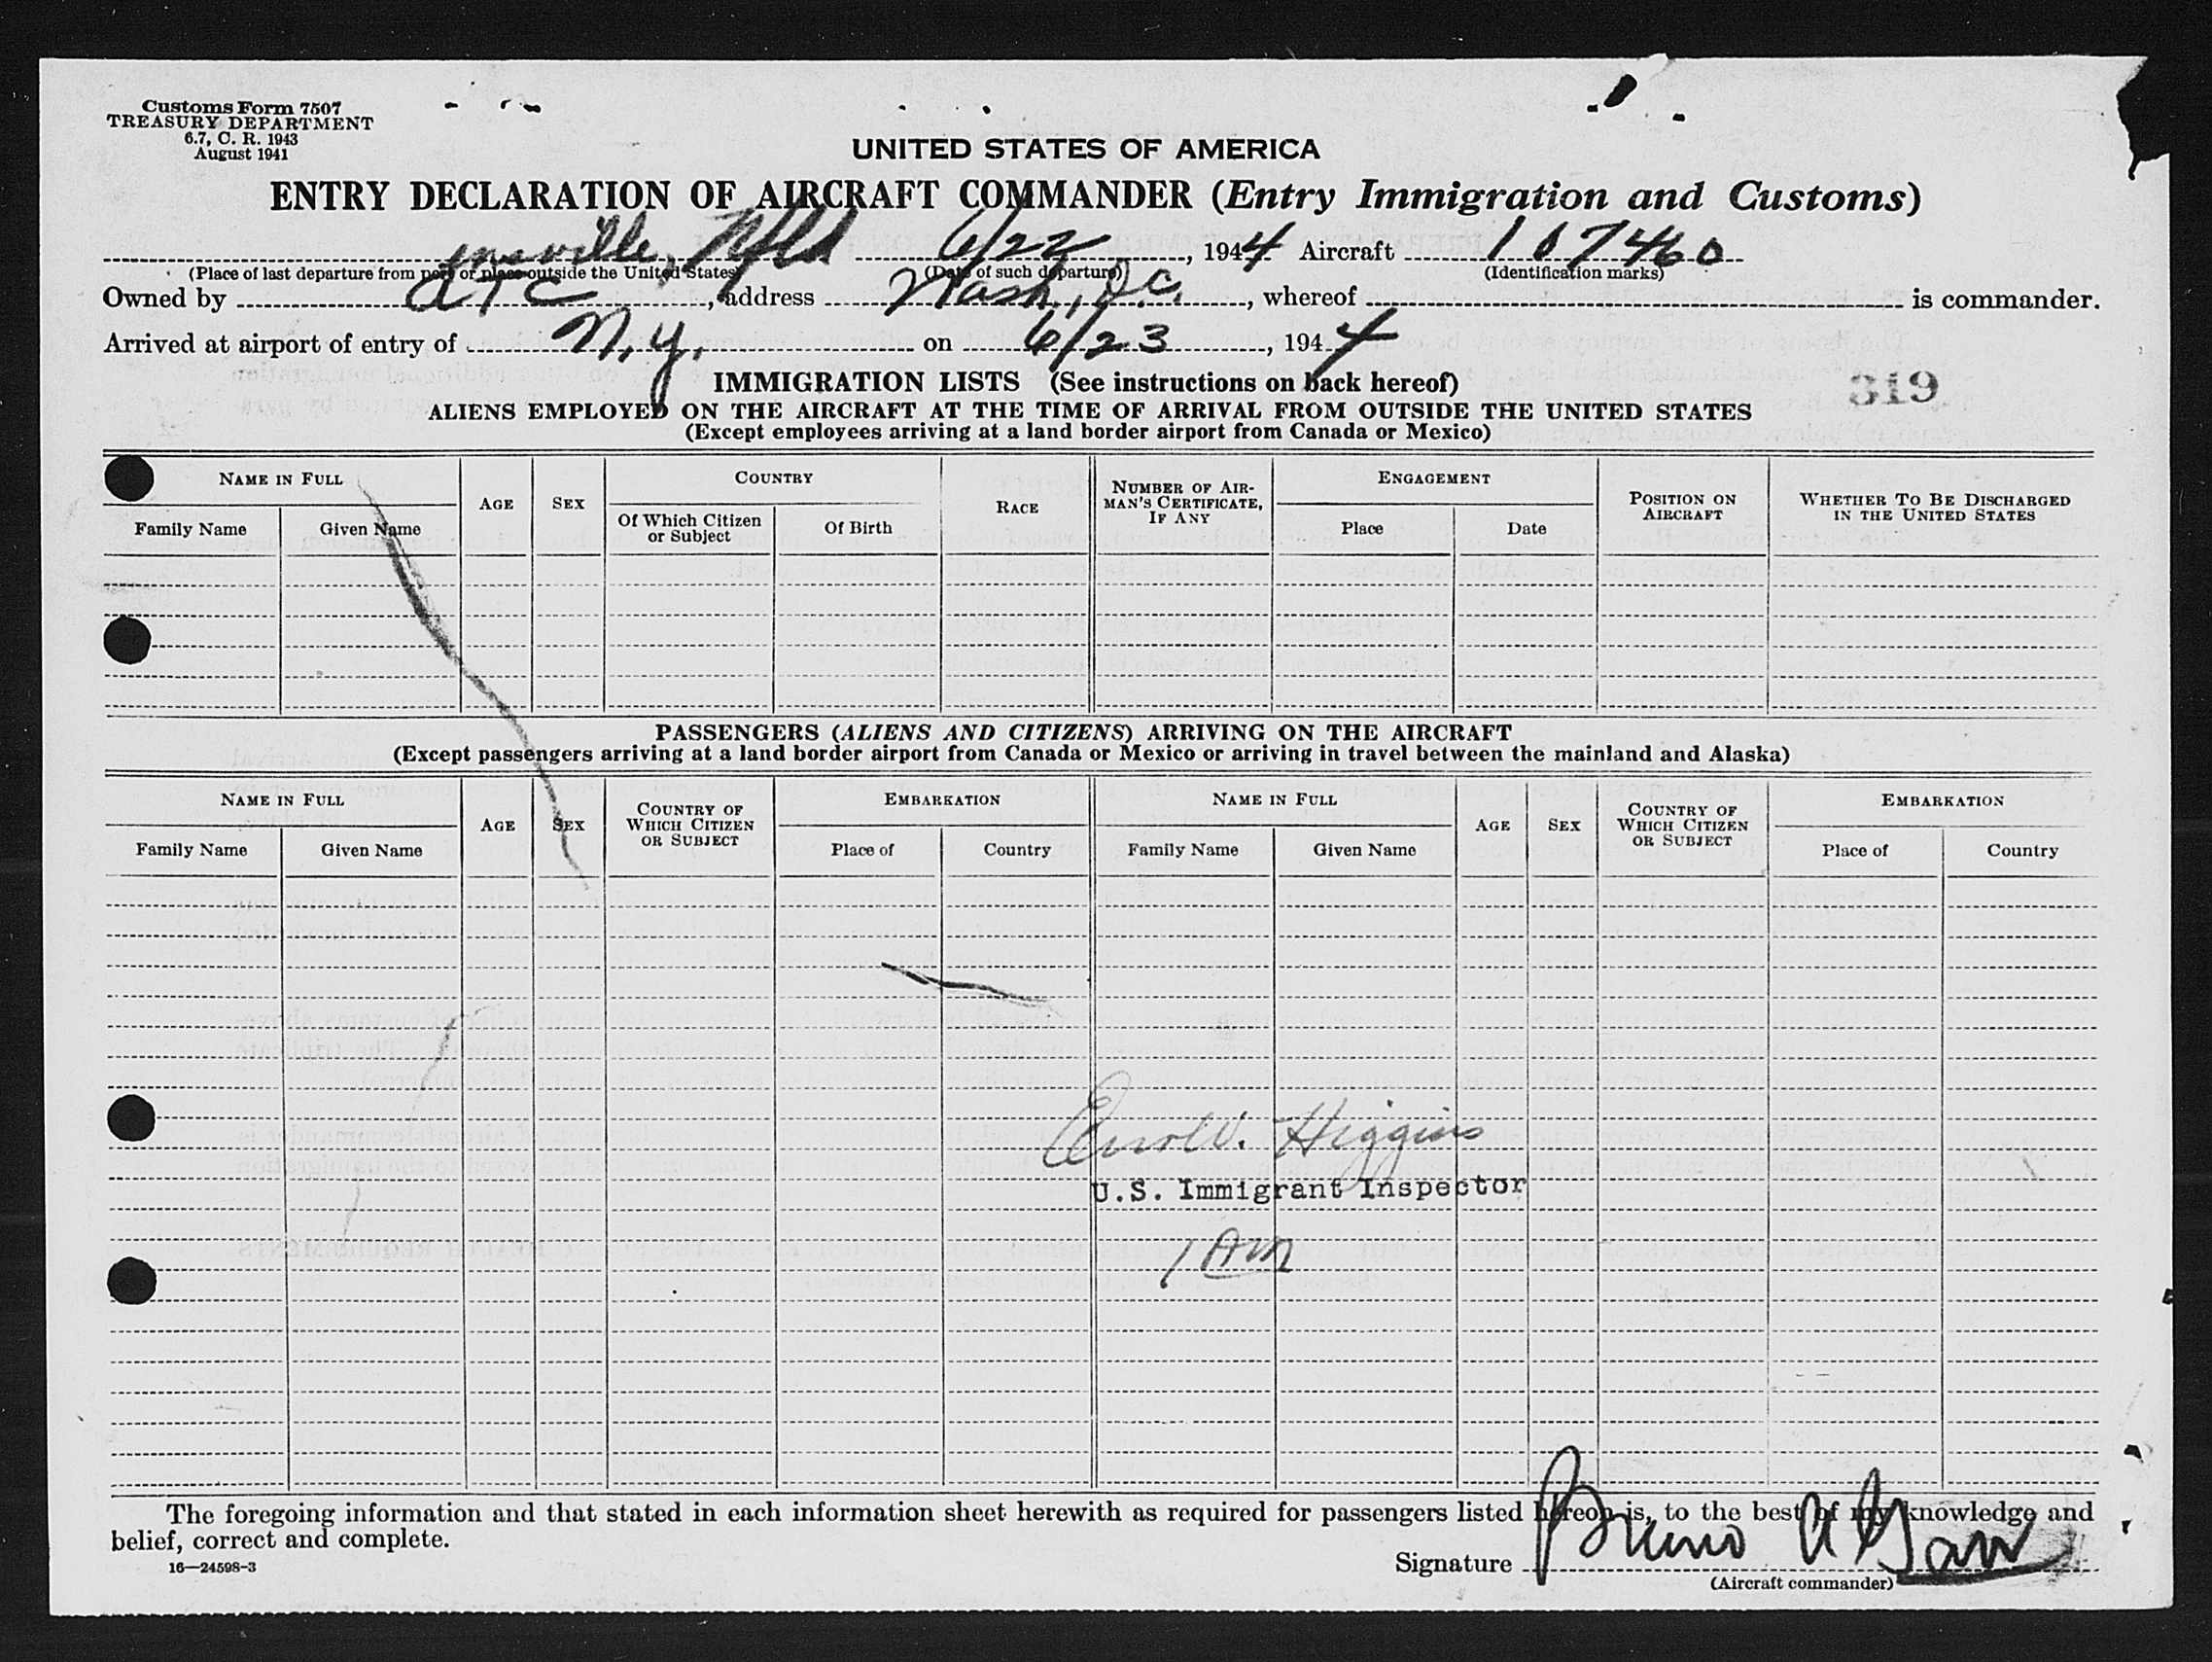 Customs Form 7507
TREASURY DEPARTMENT
6.7, C. R. 1943
August 1941
UNITED STATES OF AMERICA
ENTRY DECLARATION OF AIRCRAFT COMMANDER (Entry Immigration and Customs)
Nfld 6/22, 1944 Aircraft 107460
(Place of last departure from port or place outside the United States) (Date of such departure) (Identification marks)
Owned by ATC, address Wash, D.C., whereof is commander.
Arrived at airport of entry of N.Y. on 6/23, 1944
IMMIGRATION LISTS (See instructions on back hereof)
319
ALIENS EMPLOYED ON THE AIRCRAFT AT THE TIME OF ARRIVAL FROM OUTSIDE THE UNITED STATES
(Except employees arriving at a land border airport from Canada or Mexico)
NAME IN FULL AGE SEX COUNTRY RACE NUMBER OF AIRMAN'S CERTIFICATE, IF ANY ENGAGEMENT POSITION ON AIRCRAFT WHETHER TO BE DISCHARGED IN THE UNITED STATES
Family Name Given Name Of Which Citizen or Subject Of Birth Place Date
PASSENGERS (ALIENS AND CITIZENS) ARRIVING ON THE AIRCRAFT
(Except passengers arriving at a land border airport from Canada or Mexico or arriving in travel between the mainland and Alaska)
NAME IN FULL AGE SEX COUNTRY OF WHICH CITIZEN OR SUBJECT EMBARKATION NAME IN FULL AGE SEX COUNTRY OF WHICH CITIZEN OR SUBJECT EMBARKATION
Family Name Given Name Place of Country Family Name Given Name Place of Country
Higgins
U.S. Immigrant Inspector
1 AM
The foregoing information and that stated in each information sheet herewith as required for passengers listed hereon is, to the best of my knowledge and
belief, correct and complete.
16—24598-3
Signature Bruno
(Aircraft commander)